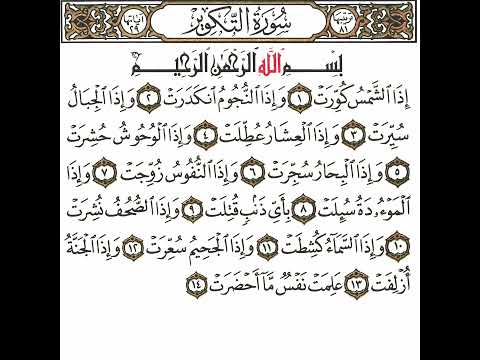 ترتيبها ٨١ سُورَةُ التَّكْوِيرِ آياتها ٢٩
بِسْمِ ٱللَّهِ ٱلرَّحْمَٰنِ ٱلرَّحِيمِ
إِذَا ٱلشَّمْسُ كُوِّرَتْ ١ وَإِذَا ٱلنُّجُومُ ٱنكَدَرَتْ ٢ وَإِذَا ٱلْجِبَالُ
سُيِّرَتْ ٣ وَإِذَا ٱلْعِشَارُ عُطِّلَتْ ٤ وَإِذَا ٱلْوُحُوشُ حُشِرَتْ
٥ وَإِذَا ٱلْبِحَارُ سُجِّرَتْ ٦ وَإِذَا ٱلنُّفُوسُ زُوِّجَتْ ٧ وَإِذَا
ٱلْمَوْءُۥدَةُ سُئِلَتْ ٨ بِأَىِّ ذَنۢبٍ قُتِلَتْ ٩ وَإِذَا ٱلصُّحُفُ نُشِرَتْ
١٠ وَإِذَا ٱلسَّمَآءُ كُشِطَتْ ١١ وَإِذَا ٱلْجَحِيمُ سُعِّرَتْ ١٢ وَإِذَا ٱلْجَنَّةُ
أُزْلِفَتْ ١٣ عَلِمَتْ نَفْسٌ مَّآ أَحْضَرَتْ ١٤